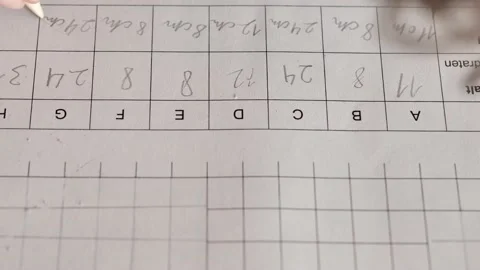 A B C D E F G H
alt 11 8 24 12 8 8 24 3
draten
11cm 8cm 24cm 12cm 8cm 8cm 24cm